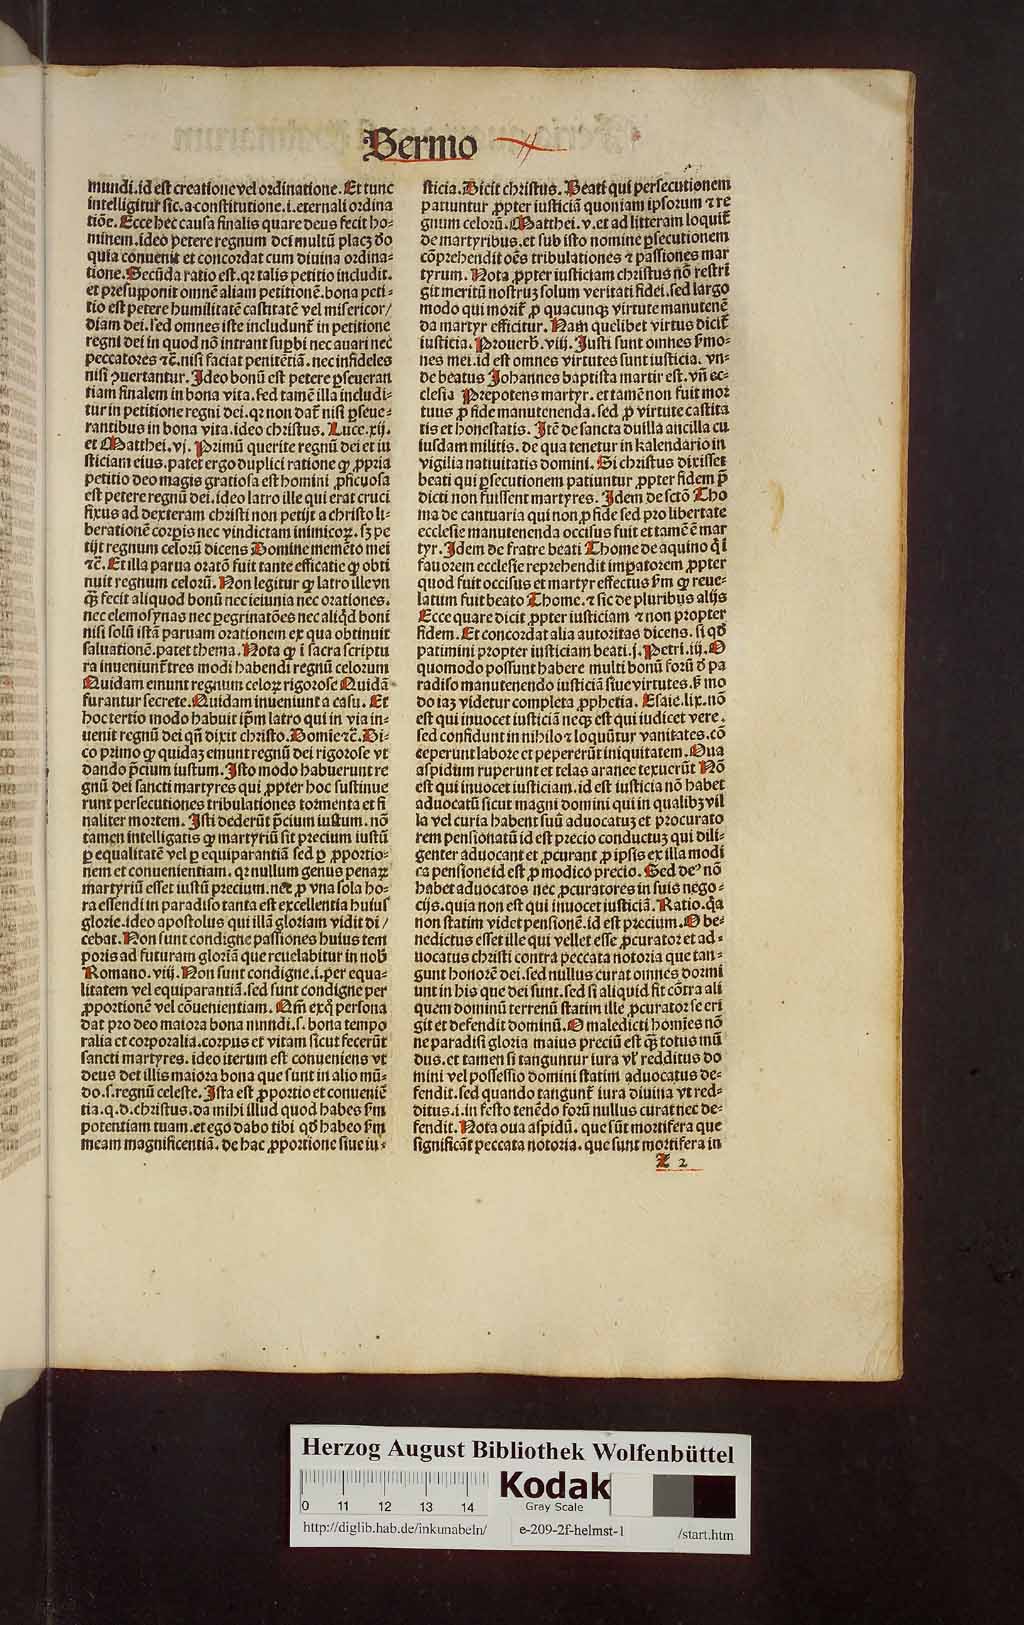 Sermo
mundi.id est creatione vel ordinatione. Et tunc
intelligitur sic.a constitutione.i.eternali ordina
tiõe. Ecce hec causa finalis quare deus fecit ho=
minem.ideo petere regnum dei multũ placꝫ deo
quia conuenit et concordat cum diuina ordina=
tione. Secũda ratio est.qꝛ talis petitio includit.
et presupponit omnẽ aliam petitionẽ.bona peti=
tio est petere humilitatẽ castitatẽ vel misericor/
diam dei.sed omnes iste includunt᷑ in petitione
regni dei in quod nõ intrant supꝑbi nec auari nec
peccatores ⁊c̃.nisi faciat penitẽtiã.nec infideles
nisi ꝯuertantur. Ideo bonũ est petere ꝑseueran
tiam finalem in bona vita.sed tamẽ illa includi=
tur in petitione regni dei.qꝛ non dat᷑ nisi ꝑseue=
rantibus in bona vita.ideo christus. Luce.xij.
et Matthei.vj. Primũ querite regnũ dei et iu
sticiam eius.patet ergo duplici ratione ꝙ ꝓpria
petitio deo magis gratiosa est homini ꝓficuosa
est petere regnũ dei.ideo latro ille qui erat cruci
fixus ad dexteram christi non petijt a christo li=
berationẽ corpꝑis nec vindictam inimicoꝝ.sꝫ pe
tijt regnum celorũ dicens Domine memẽto mei
⁊c̃. Et illa parua oratõ fuit tante efficatie ꝙ obti
nuit regnum celorũ. Non legitur ꝙ latro ille vn
q̃ꝫ fecit aliquod bonũ nec ieiunia nec orationes.
nec elemosynas nec ꝑegrinatões nec aliq̇d boni
nisi solũ istã paruam orationem ex qua obtinuit
saluationẽ.patet thema. Nota ꝙ ĩ sacra scriptu
ra inueniunt᷑ tres modi habendi regnũ celorum
Quidam emunt regnum celoꝝ rigorose Quidã
furantur secrete. Quidam inueniunt a casu. Et
hoc tertio modo habuit ip̃m latro qui in via in=
uenit regnũ dei qñ dixit christo. Domie ⁊c̃. Di=
co primo ꝙ quidaꝫ emunt regnũ dei rigorose vt
dando p̃cium iustum. Isto modo habuerunt re
gnũ dei sancti martyres qui ꝓpter hoc sustinue
runt persecutiones tribulationes tormenta et fi
naliter mortem. Isti dederũt p̃cium iustum.nõ
tamen intelligatis ꝙ martyriũ sit precium iustũ
ꝑ equalitatẽ vel ꝑ equiparantiã sed ꝑ ꝓportio=
nem et conuenientiam.qꝛ nullum genus penaꝝ
martyriũ esset iustũ precium.nec̃ ꝓ vna sola ho=
ra essendi in paradiso tanta est excellentia huius
glorie.ideo apostolus qui illã gloriam vidit di/
cebat. Non sunt condigne passiones huius tem
poris ad futuram gloriã que reuelabitur in nob̃
Romano.viij. Non sunt condigne.i.per equa=
litatem vel equiparantiã.sed sunt condigne per
ꝓportionẽ vel cõuenientiam. Qm̃ exq̊ persona
dat pro deo maiora bona mundi.s.bona tempo
ralia et corporalia.corpus et vitam sicut fecerũt
sancti martyres.ideo iterum est conueniens vt
deus det illis maiora bona que sunt in alio mũ=
do.s.regnũ celeste. Ista est ꝓportio et conueniẽ
tia.q.d.christus.da mihi illud quod habes s̃m
potentiam tuam.et ego dabo tibi qd̃ habeo s̃m
meam magnificentiã.de hac ꝓportione siue iu=
sticia. Dicit christus. Beati qui persecutionem
patiuntur ꝓpter iusticiã quoniam ipsorum ⁊ re
gnum celorũ. Matthei.v.et ad litteram loquit᷑
de martyribus.et sub isto nomine ꝑsecutionem
cõprehendit oẽs tribulationes ⁊ passiones mar
tyrum. Nota ꝓpter iusticiam christus nõ restri
git meritũ nostruꝫ solum veritati fidei.sed largo
modo qui morit᷑ ꝓ quacunqꝫ virtute manutenẽ
da martyr efficitur. Nam quelibet virtus dicit᷑
iusticia. Prouerb.viij. Iusti sunt omnes s̃mo=
nes mei.id est omnes virtutes sunt iusticia.vn=
de beatus Johannes baptista martir est.vñ ec=
clesia Prepotens martyr.et tamẽ non fuit mor
tuus ꝓ fide manutenenda.sed ꝓ virtute castita
tis et honestatis. Itẽ de sancta duilla ancilla cu
iusdam militis.de qua tenetur in kalendario in
vigilia natiuitatis domini. Si christus dixisset
beati qui ꝑsecutionem patiuntur ꝓpter fidem p̃
dicti non fuissent martyres. Idem de sctõ Tho
ma de cantuaria qui non ꝓ fide sed pro libertate
ecclesie manutenenda occisus fuit et tamẽ ẽ mar
tyr. Idem de fratre beati Thome de aquino q̇ i
fauorem ecclesie reprehendit imꝑatorem ꝓpter
quod fuit occisus et martyr effectus s̃m ꝙ reue=
latum fuit beato Thome.⁊ sic de pluribus alijs
Ecce quare dicit ꝓpter iusticiam ⁊ non propter
fidem. Et concordat alia autoritas dicens.si qd̃
patimini propter iusticiam beati.j. Petri.iij. O
quomodo possunt habere multi bonũ forũ d̃ pa
radiso manutenendo iusticiã siue virtutes.s̃ mo
do iaꝫ videtur completa ꝓphetia. Esaie.lix.nõ
est qui inuocet iusticiã neqꝫ est qui iudicet vere.
sed confidunt in nihilo ⁊ loquũtur vanitates.cõ
ceperunt labore et pepererũt iniquitatem. Oua
aspidum ruperunt et telas aranee texuerũt Nõ
est qui inuocet iusticiam.id est iusticia nõ habet
aduocatũ sicut magni domini qui in qualibꝫ vil
la vel curia habent suũ aduocatuꝫ et procurato
rem pensionatũ id est precio conductuꝫ qui dili=
genter aduocant et ꝓcurant ꝓ ipsis ex illa modi
ca pensione id est ꝓ modico precio. Sed deꝰ nõ
habet aduocatos nec ꝓcuratores in suis nego=
cijs.quia non est qui inuocet iusticiã. Ratio.q̃a
non statim videt pensionẽ.id est precium. O be=
nedictus esset ille qui vellet esse ꝓcurator et ad=
uocatus christi contra peccata notoria que tan=
gunt honorẽ dei.sed nullus curat omnes dormi
unt in his que dei sunt.sed si aliquid fit cõtra ali
quem dominũ terrenũ statim ille ꝓcurator se eri
git et defendit dominũ. O maledicti homies nõ
ne paradisi gloria maius preciũ est q̃ꝫ totus mũ
dus.et tamen si tanguntur iura vl̓ redditus do
mini vel possessio domini statim aduocatus de=
fendit.sed quando tangunt᷑ iura diuina vt red=
ditus.i.in festo tenẽdo forũ nullus curat nec de=
fendit. Nota oua aspidũ.que sũt mortifera que
significãt peccata notoria.que sunt mortifera in
2
Herzog August Bibliothek Wolfenbüttel
Kodak
Gray Scale
0 11 12 13 14
http://diglib.hab.de/inkunabeln/ e-209-2f-helmst-1 /start.htm